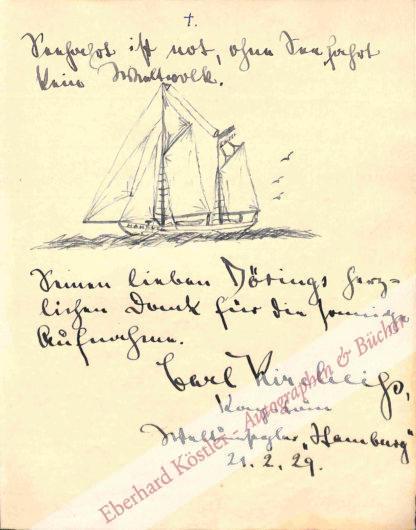 †.
Seefahrt ist not, ohne Seefahrt
kein Weltvolk.
Seinen lieben Dörings herz=
lichen Dank für die sonnige
Aufnahme.
Carl Kircheiß,
Kapitän
Weltumsegler „Hamburg"
21. 2. 29.
Eberhard Köstler - Autographen & Bücher